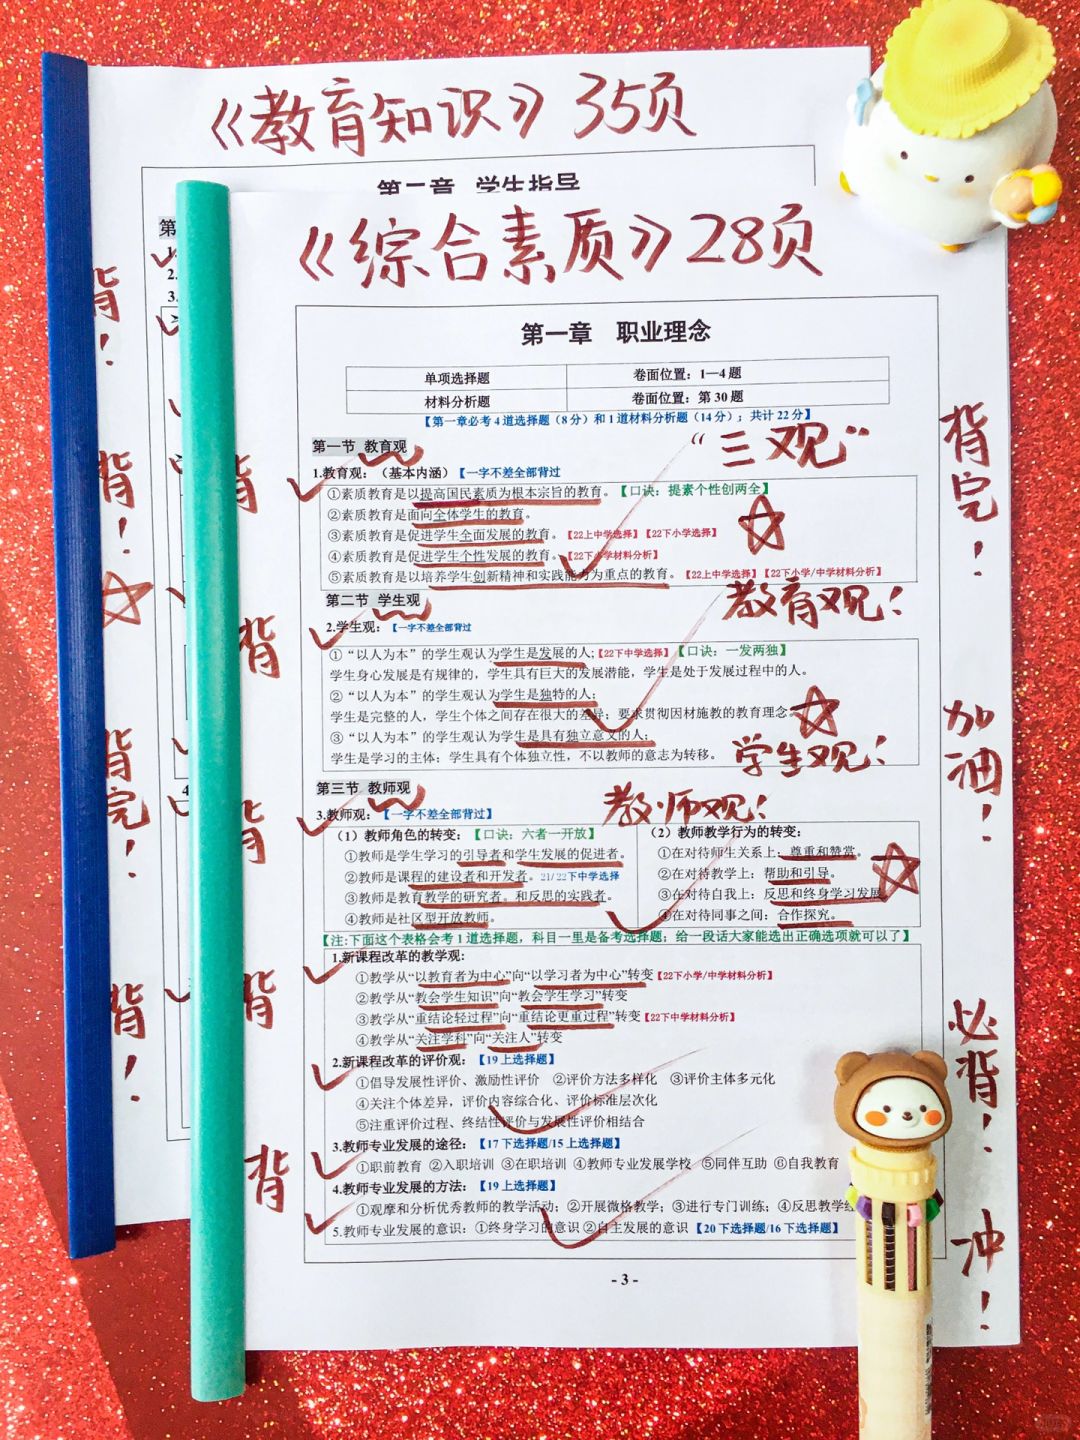 《教育知识》35页
第二章 学生指导
《综合素质》28页
第一章 职业理念
单项选择题 卷面位置：1—4题
材料分析题 卷面位置：第30题
【第一章必考4道选择题（8分）和1道材料分析题（14分）；共计22分】
“三观”
第一节 教育观
1.教育观：（基本内涵）【一字不差全部背过
①素质教育是以提高国民素质为根本宗旨的教育。【口诀：提素个性创两全】
②素质教育是面向全体学生的教育。
③素质教育是促进学生全面发展的教育。【22上中学选择】【22下小学选择】
④素质教育是促进学生个性发展的教育。【22下小学材料分析】
⑤素质教育是以培养学生创新精神和实践能力为重点的教育。【22上中学选择】【22下小学/中学材料分析】
教育观！
第二节 学生观
2.学生观：【一字不差全部背过
①“以人为本”的学生观认为学生是发展的人;【22下中学选择】【口诀：一发两独】
学生身心发展是有规律的，学生具有巨大的发展潜能，学生是处于发展过程中的人。
②“以人为本”的学生观认为学生是独特的人;
学生是完整的人，学生个体之间存在很大的差异；要求贯彻因材施教的教育理念
③“以人为本”的学生观认为学生是具有独立意义的人;
学生是学习的主体；学生具有个体独立性，不以教师的意志为转移。
学生观！
第三节 教师观
教师观！
3.教师观：【一字不差全部背过】
（1）教师角色的转变：【口诀：六者一开放】
①教师是学生学习的引导者和学生发展的促进者。
②教师是课程的建设者和开发者。21/22下中学选择
③教师是教育教学的研究者。和反思的实践者。
④教师是社区型开放教师。
（2）教师教学行为的转变：
①在对待师生关系上：尊重和赞赏。
②在对待教学上：帮助和引导。
③在对待自我上：反思和终身学习发展
④在对待同事之间：合作探究。
【注:下面这个表格会考1道选择题，科目一里是备考选择题；给一段话大家能选出正确选项就可以了】
1.新课程改革的教学观:
①教学从“以教育者为中心”向“以学习者为中心”转变【22下小学/中学材料分析】
②教学从“教会学生知识”向“教会学生学习”转变
③教学从“重结论轻过程”向“重结论更重过程”转变【22下中学材料分析】
④教学从“关注学科”向“关注人”转变
2.新课程改革的评价观：【19上选择题】
①倡导发展性评价、激励性评价 ②评价方法多样化 ③评价主体多元化
④关注个体差异，评价内容综合化、评价标准层次化
⑤注重评价过程、终结性评价与发展性评价相结合
3.教师专业发展的途径：【17下选择题/15上选择题】
①职前教育 ②入职培训 ③在职培训 ④教师专业发展学校 ⑤同伴互助 ⑥自我教育
4.教师专业发展的方法：【19上选择题】
①观摩和分析优秀教师的教学活动；②开展微格教学；③进行专门训练；④反思教学
5.教师专业发展的意识：①终身学习的意识 ②自主发展的意识【20下选择题/16下选择题】
- 3 -
背完！
加油！
必背！
冲！
背！
背！
背完！
背！
背
背
背
背
背